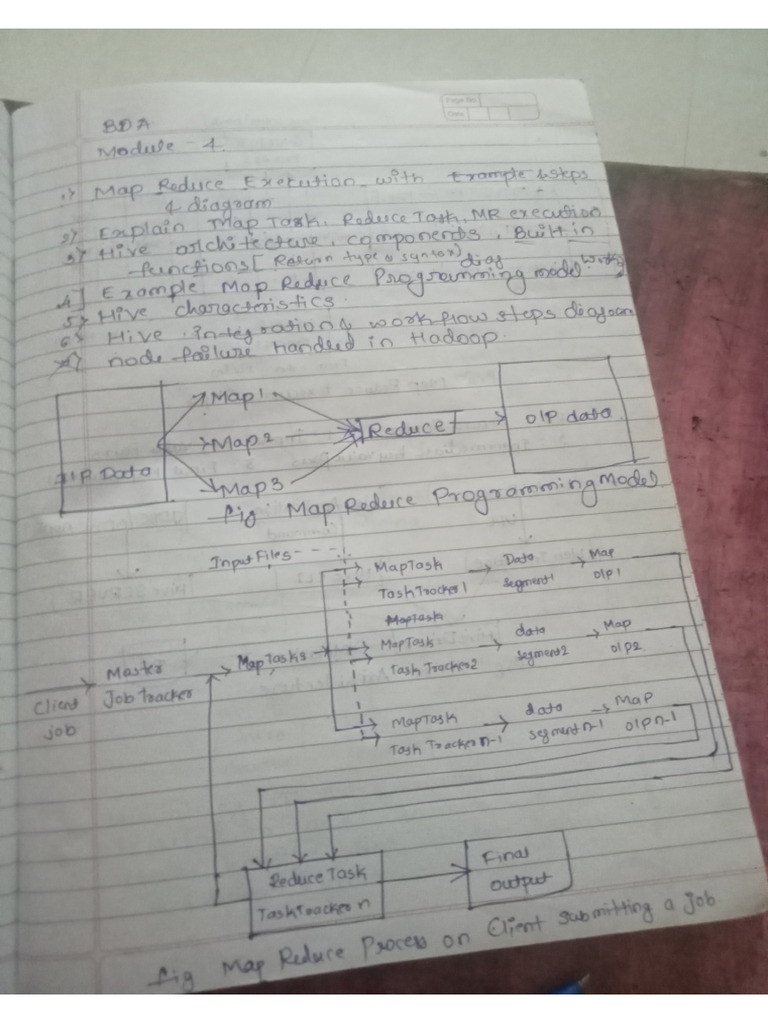 Page No.
Date
BDA
Module - 4.
1.) Map Reduce Execution with Example & steps
& diagram
2) Explain Map Task, Reduce Task, MR execution
3) Hive architecture, components, Built in
functions [Return type & syntax]
4] Example Map Reduce Programming model
diag
5) Hive characteristics.
6) Hive integration & work flow steps diagram
node failure handled in Hadoop.
I/P Data
Map1
Map2
Map3
Reduce
O/P data
fig Map Reduce Programming Model
Input Files
Client
job
Master
Job Tracker
Map Tasks
MapTask
Task Tracker 1
Data
segment1
Map
O/P1
MapTask
MapTask
Task Tracker2
data
segment2
Map
O/P2
MapTask
Task Tracker n-1
data
segment n-1
Map
O/P n-1
Reduce Task
TaskTracker n
Final
Output
fig Map Reduce Process on Client submitting a job